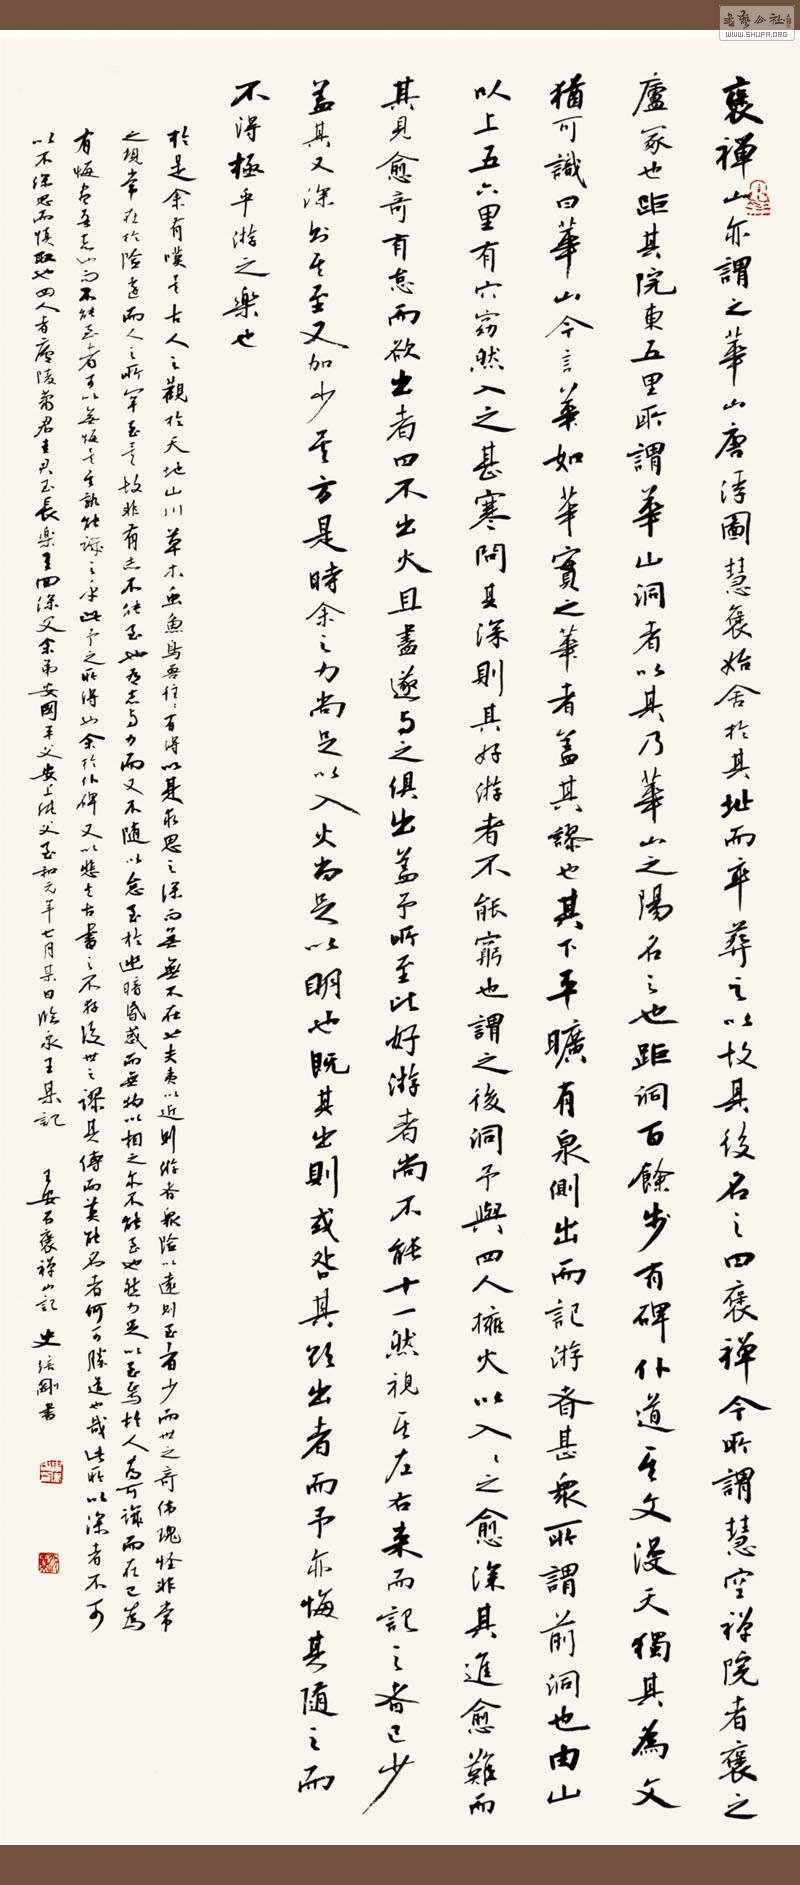 褒禪山亦謂之華山唐浮圖慧褒始舍於其址而卒葬之以故其後名之曰褒禪今所謂慧空禪院者褒之
廬冢也距其院東五里所謂華山洞者以其乃華山之陽名之也距洞百餘步有碑仆道其文漫灭獨其為文
猶可識曰華山今言華如華實之華者蓋其謬也其下平曠有泉側出而記游者甚衆所謂前洞也由山
以上五六里有穴窈然入之甚寒問其深則其好游者不能窮也謂之後洞予與四人擁火以入々之愈深其進愈難而
其見愈奇有怠而欲出者曰不出火且盡遂与之俱出蓋予所至比好游者尚不能十一然視其左右来而記之者已少
蓋其又深則其至又加少矣方是時余之力尚足以入火尚足以明也既其出則或咎其欲出者而予亦悔其隨之而
不得極乎游之樂也
於是余有嘆焉古人之觀於天地山川草木虫魚鳥獸往々有得以是求思之深而無無不在也夫夷以近則游者衆險以遠則至者少而世之奇偉瑰怪非常
之觀常在於險遠而人之所罕至焉故非有志不能至也有志与力而又不隨以怠至於幽暗昏惑而無物以相之亦不能至也然力足以至焉於人為可譏而在己為
有悔盡吾志也而不能至者可以無悔矣其孰能譏之乎此予之所得也余於仆碑又以悲夫古書之不存後世之謬其傳而莫能名者何可勝道也哉此所以深者不可
以不深思而慎取也四人者廬陵蕭君圭君玉長樂王回深父余弟安國平父安上純父至和元年七月某日臨川王某記 王安石褒禪山記 史培剛書
書藝公社
WWW.SHUFA.ORG